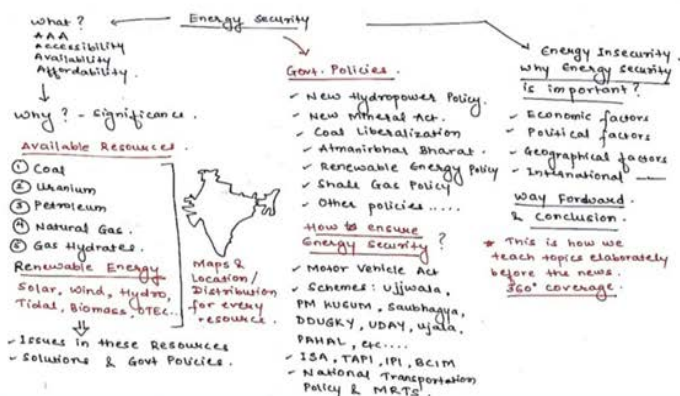 Energy Security
What?
AAA
Accessibility
Availability
Affordability.
Why? - Significance.
Available Resources.
① Coal
② Uranium
③ Petroleum
④ Natural Gas.
⑤ Gas Hydrates.
Renewable Energy
Solar, Wind, Hydro,
Tidal, Biomass, OTEC...
Issues in these Resources
Solutions & Govt Policies.
Maps &
Location/
Distribution
for every
resource.
Govt. Policies.
New Hydropower Policy.
New Mineral Act.
Coal Liberalization
Atmanirbhar Bharat.
Renewable Energy Policy
Shale Gas Policy
Other policies.....
How to ensure
Energy Security?
Motor Vehicle Act
Schemes: Ujjwala,
PM KUSUM, Saubhagya,
DDUGKY, UDAY, Ujala,
PAHAL, etc....
ISA, TAPI, IPI, BCIM
National Transportation
Policy & MRTS.
Energy Insecurity.
Why Energy Security
is important?
Economic factors
Political factors
Geographical factors
International
Way Forward.
& Conclusion.
* This is how we
teach topics elaborately
before the news.
360° coverage.